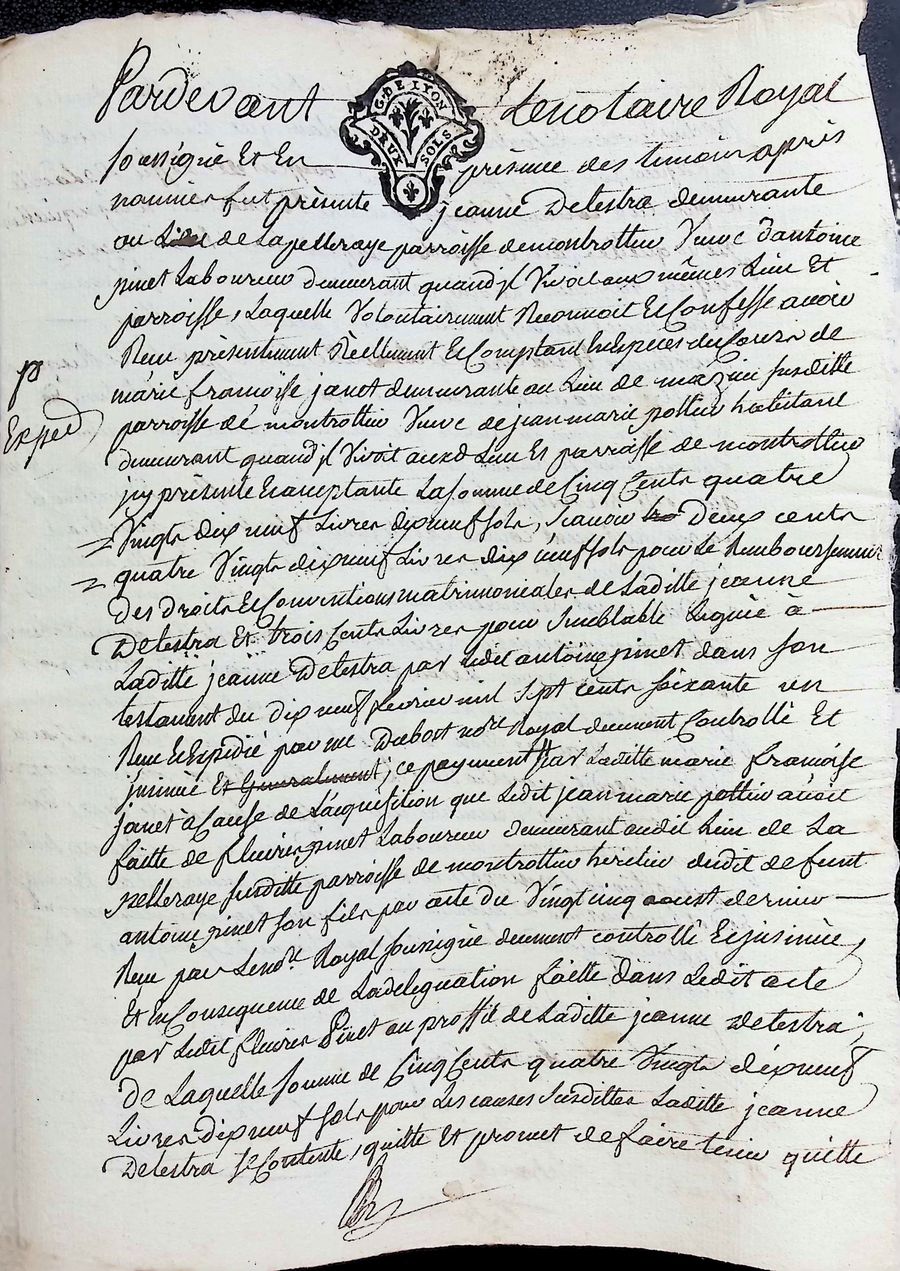 Pardevant Lenotaire Royal
G. DE LYON
DEUX SOLS
soussigné Et En présence des temoins après
nommés fut présente jeanne Detestra demeurante
au Lieu de Lapelleraye parroisse demontrottier Veuve d'antoine
pinet Laboureur demeurant quand jl Vivoit aux mêmes Lieu Et
parroisse, Laquelle Volontairement Reconnoit Et Confesse avoir
Reçu présentement Réellement Et Comptant En Espèces du Cours de
márie françoise janet demeurante au Lieu de mazieu susditte
parroisse de montrottier Veuve de jean marie pottier habitant
demeurant quand jl Vivoit auxd Lieu Et parroisse de montrottier
jcy présente Et acceptante La somme de Cinq Cents quatre
Vingts dix neuf Livres dix neuf sols, sçavoir Deux cents
quatre Vingts dix neuf Livres dix neuf sols pour Le Remboursement
Des droits Et Conventions matrimoniales de Laditte jeanne
Detestra Et trois Cents Livres pour semblable Leguée à
Laditte jeanne Detestra par Ledit antoine pinet dans son
testament du dix neuf fevrier mil sept cents soixante un
Reçu Et Expédié par me Dubost nore Royal duement Controllé Et
jnsinué Et Generalement, ce payement par Laditte marie françoise
janet à Cause de L'acquisition que Ledit jean marie pottier avoit
faitte de fleury pinet Laboureur demeurant audit Lieu de La
pelleraye susditte parroisse de montrottier heritier dudit defunt
antoine pinet son fils par acte du Vingt cinq aoust dernier
Reçu par Le nore Royal soussigné duement controllé Et jnsinué,
Et En Consequence de La delegation faitte dans Ledit acte
par Ledit fleury Pinet au proffit de Laditte jeanne Detestra,
De Laquelle somme de Cinq Cents quatre Vingts dix neuf
Livres dix neuf sols pour Les causes susdittes Laditte jeanne
Detestra se Contente, quitte Et promet de faire tenir quitte
Exped